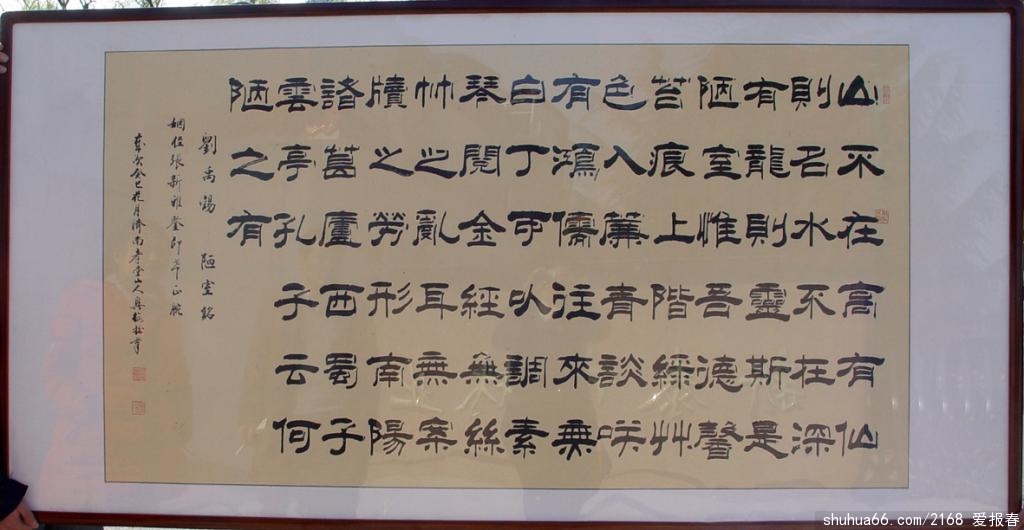 山不在高有仙
則名水不在深
有龍則靈斯是
陋室惟吾德馨
苔痕上階綠艸
色入簾青談咲
有鴻儒往來無
白丁可以調素
琴閱金經無絲
竹之亂耳無案
牘之勞形南陽
諸葛廬西蜀子
雲亭孔子云何
陋之有
劉禹錫 陋室銘
姻侄張新雅
歲次癸巳花月濟南孝堂山人
shuhua66.com/2168 爱报春